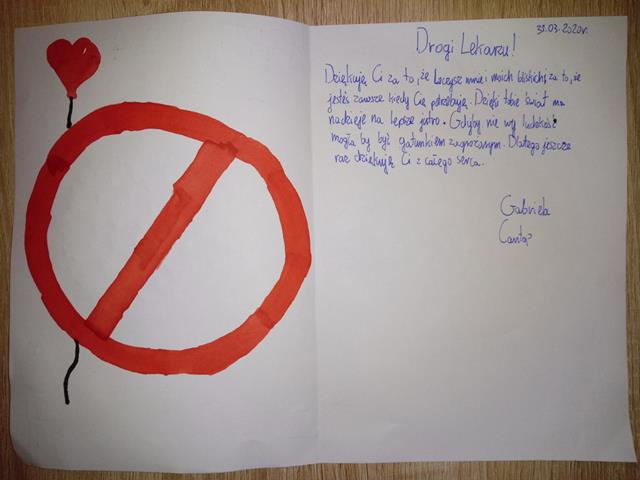 31.03.2020r.
Drogi Lekarzu!
Dziękuję Ci za to, że leczysz mnie i moich bliskich, za to, że
jesteś zawsze kiedy Cię potrzebuję. Dzięki tobie świat ma
nadzieję na lepsze jutro. Gdyby nie wy ludzkość
mogła by być gatunkiem zagrożonym. Dlatego jeszcze
raz dziękuję Ci z całego serca.
Gabriela